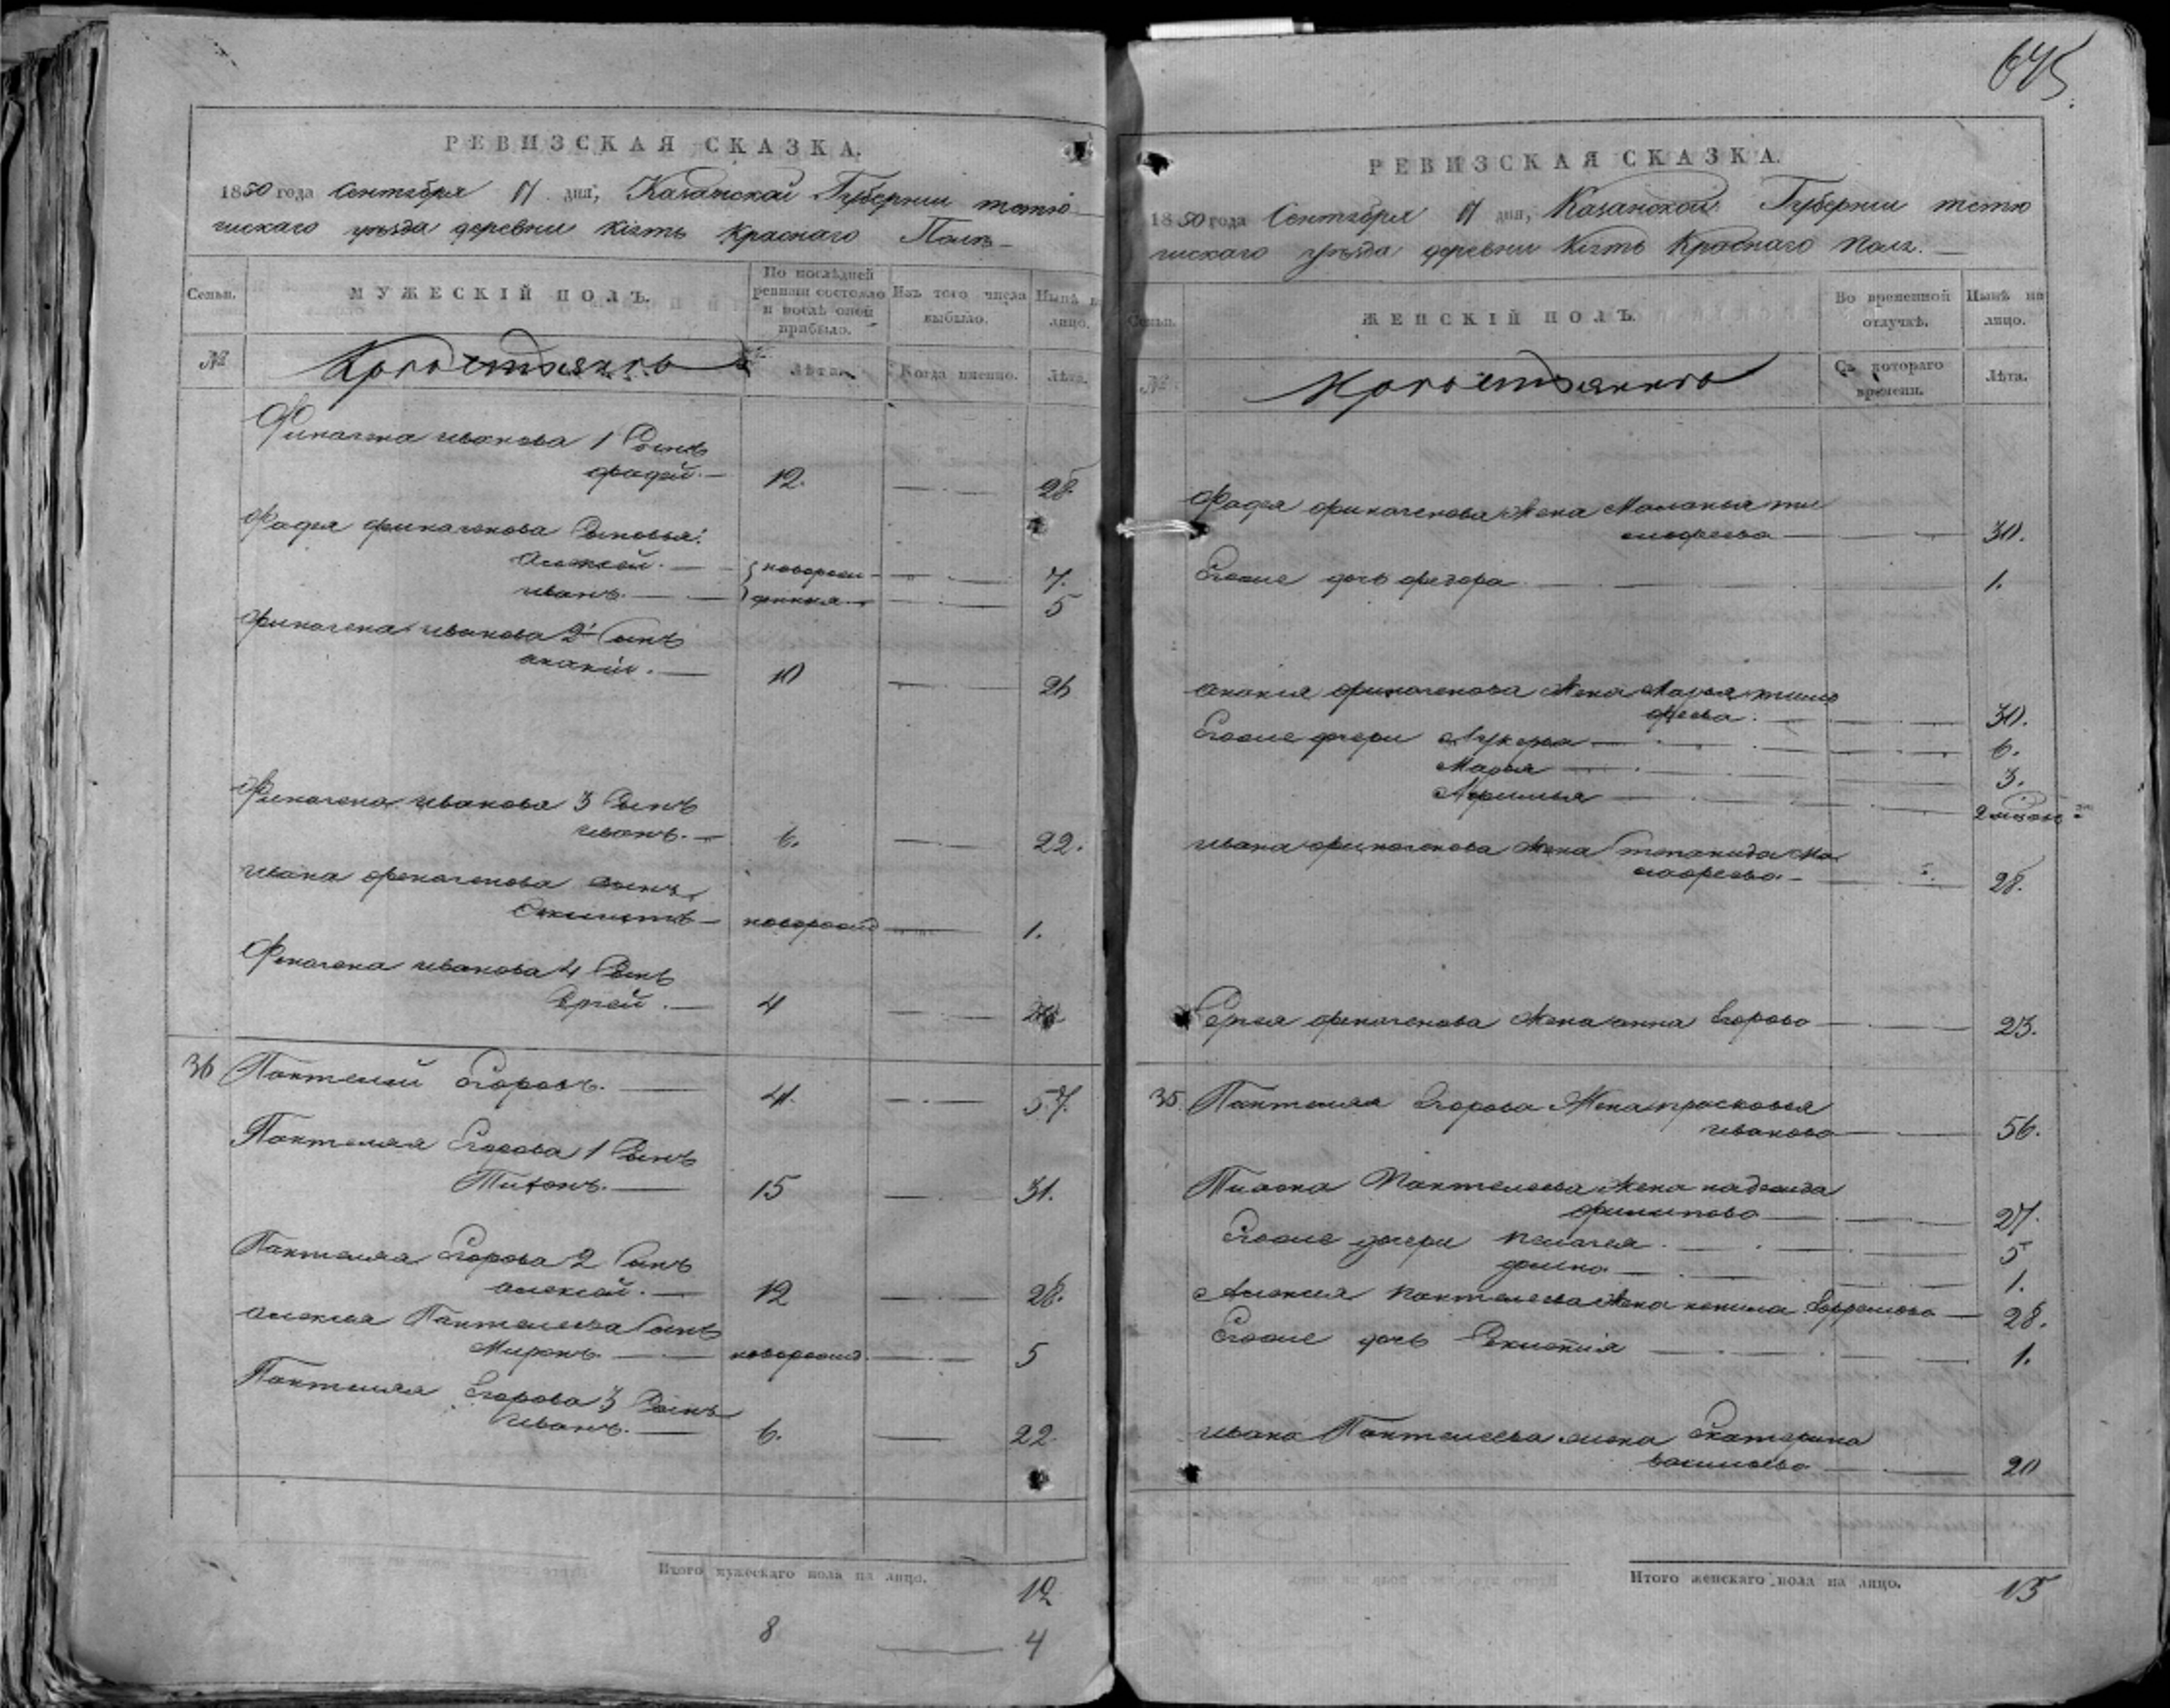 РЕВИЗСКАЯ СКАЗКА.
1850 года Сентября 17 дня, Казанской Губернии тетю
шскаго уѣзда деревни Кіять Краснаго
Семьи.
МУЖЕСКІЙ ПОЛЪ.
По послѣдней ревизіи состояло и послѣ оной прибыло.
Изъ того числа выбыло.
Нынѣ на лицо.
№
Лѣта.
Когда именно.
Лѣта.
иванова 1 Сынъ
фадей. — 12. — 28.
Фадея Сыновья:
Алексей. — новорож 7.
иванъ. — денныя 5
иванова 2 Сынъ
акакій. — 10 — 26
иванова 3 Сынъ
иванъ. — 6. — 22.
ивана сынъ
новорожд — 1.
иванова 4 Сынъ
Сергей. — 4 —
36 Пантелей Егоровъ. — 41. — 57.
Пантелея Егорова 1 Сынъ
Тихонъ. — 15 — 31.
Пантелея Егорова 2 Сынъ
алексей. — 12 — 28.
алексея Пантелеева Сынъ
Миронъ. — новорожд. — 5
Пантелея Егорова 3 Сынъ
Иванъ. — 6. — 22
Итого мужескаго пола на лицо. 12
8 — 4
675.
РЕВИЗСКАЯ СКАЗКА.
1850 года Сентября 17 дня, Казанской Губернии тетю
шскаго уѣзда деревни Кіять Краснаго
Семьи.
ЖЕНСКІЙ ПОЛЪ.
Во временной отлучкѣ.
Нынѣ на лицо.
№
Съ котораго времени.
Лѣта.
Фадея Жена Маланья ти
мофеева — 30.
Егоже дочь федора — 1.
акакия Жена Марья тимо
феева. — 30.
Егоже дочери Лукерья — 6.
Марья — 3.
Афимья —
ивана Жена Степанида
28.
Сергея Жена анна Егорова — 23.
35. Пантелея Егорова Жена прасковья
иванова — 56.
Тихона Пантелеева Жена надежда
филипова — 27.
Егоже дочери пелагея. — 5
домна — 1.
Алексея пантелеева Жена — 28.
Егоже дочь — 1.
ивана Пантелеева жена Екатерина
васильева — 20
Итого женскаго пола на лицо. 15